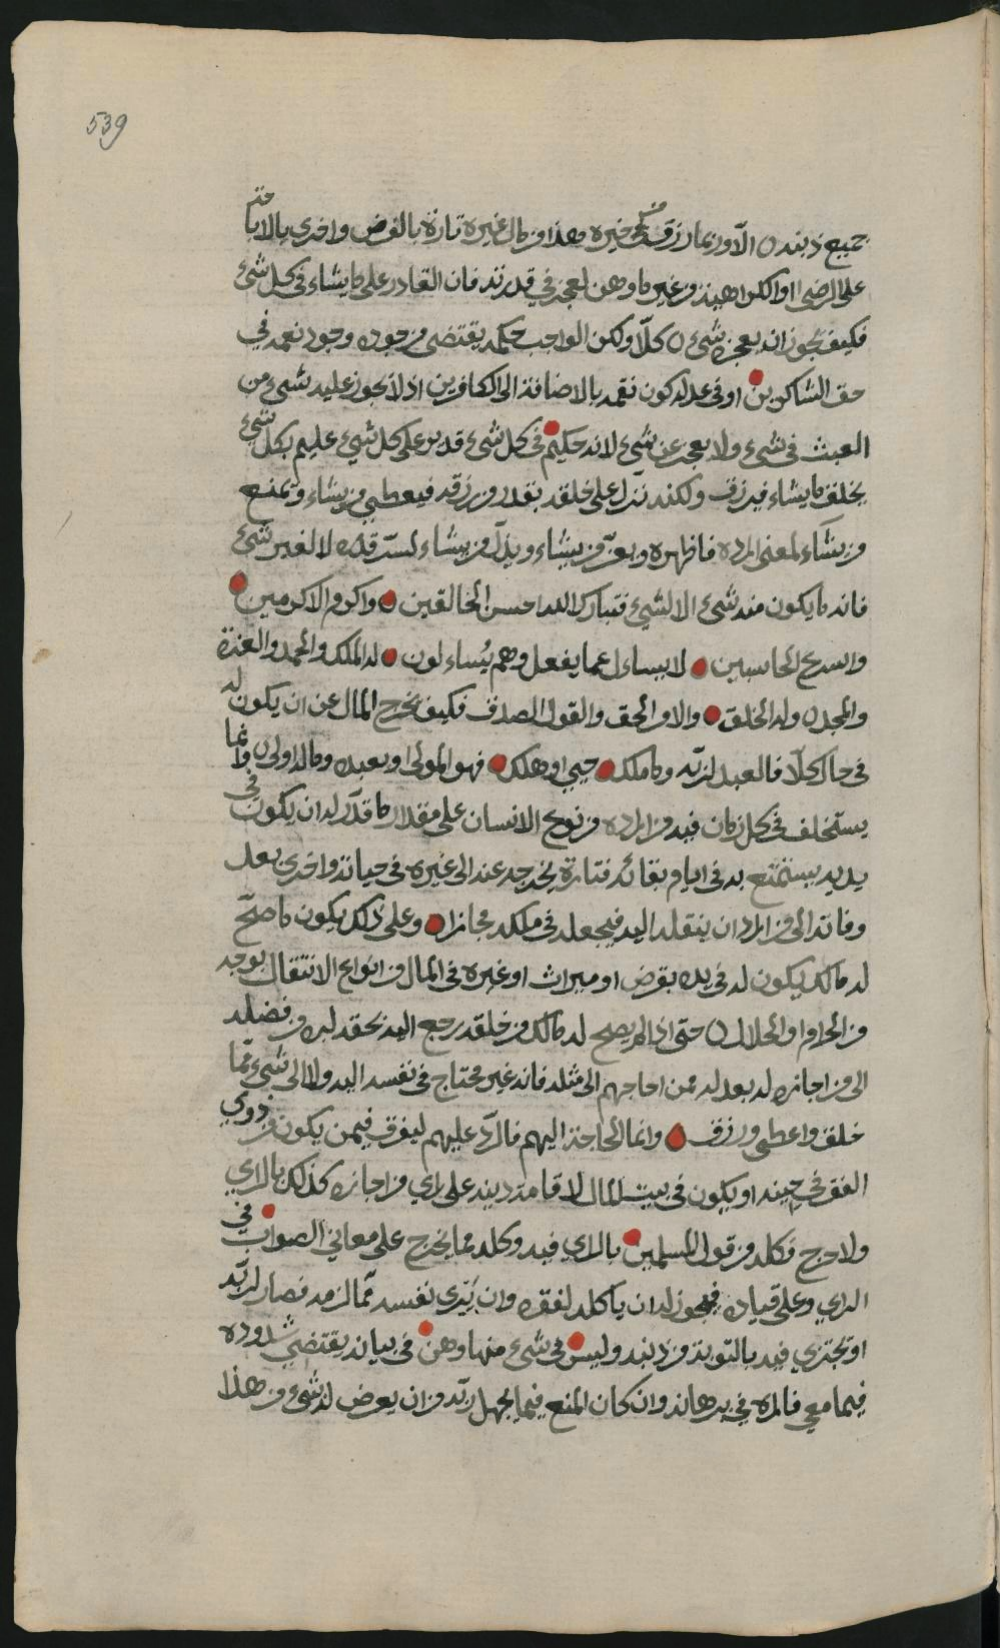 539
جميع ذنبه الا وربما رزق خيره هذا من مال غيره تارة بالفرض واخرى بالاباحة
على الرضى او الكراهية من غير ما وهن لعجز في قدرته فان القادر على ما يشاء في كل شيء
فكيف يجوز ان يعجزه شيء كلا ولكن الواجب حكمه يقتضي من جوده وجود نعمه في
حق الشاكرين او في عدله كون نقمه بالاضافة الى الكافرين اذ لا يجوز عليه شيء من
العبث في شيء ولا يعجز عن شيء لانه حكيم في كل شيء قدير على كل شيء عليم بكل شيء
يخلق ما يشاء فيرزق ولكنه نزل على خلقه بقدر من رزقه فيعطي من يشاء ويمنع
من يشاء لمعنى اراده فاظهره ويعز من يشاء ويذل من يشاء لسر قدره لا لغير شيء
فانه ما يكون منه شيء الا لشيء فتبارك الله احسن الخالقين واكرم الاكرمين
واسرع الحاسبين لا يساءل عما يفعل وهم يُساءلون له الملك والحمد والعزة
والمجد وله الخلق والامر الحق والقول الصدق فكيف يخرج المال عن ان يكون له
في حال كلا فالعبد لربه وما ملك حيي او هلك فهو المولى او بعبده وماله اولى وانما
يستخلف في كل زمان فيه من اراده من نوع الانسان على مقدار ما قدر له ان يكون في
يديه يستمتع به في ايام بقائه فتارة يخرجه عنه الى غيره في حياته واخرى بعد
وفاته الى من اراد ان ينقله اليه فيجعله في ملكه مجازا وعلى ذلك يكون ما صح
له مالك يكون له في يده بقرض او ميراث او غيره في المال من انواع الانتقال بوجه
من الحرام او الحلال حتى اذا لم يصح له مالك من خلقه رجع اليه بحقه لبره من فضله
الى من اجازه له بعدله ممن احاجهم الى مثله فانه غير محتاج في نفسه اليه ولا الى شيء مما
خلق واعطى ورزق وانما الحاجة اليهم فالرد عليهم ليفرق فيمن يكون من ذوي
الفقر في حينه او يكون في بيت المال لاقامة دينه على راي من اجازه كذلك بالراي
ولا حرج فكله من قول المسلمين بالراي فيه وكله مما يخرج على معاني الصواب في
الراي وعلى قياده فيجوز له ان ياكله لفقره وان يَبرى نفسه مما لزمه فصار لربه
او يجتزي فيه بالتوبة من ذنبه وليس في شيء منها وهن في بيانه يقتضي شدوده
فيما معي فالمره في برهانه وان كان المنع فيما يجهل ربه من ان يعرض له شيء من هذا